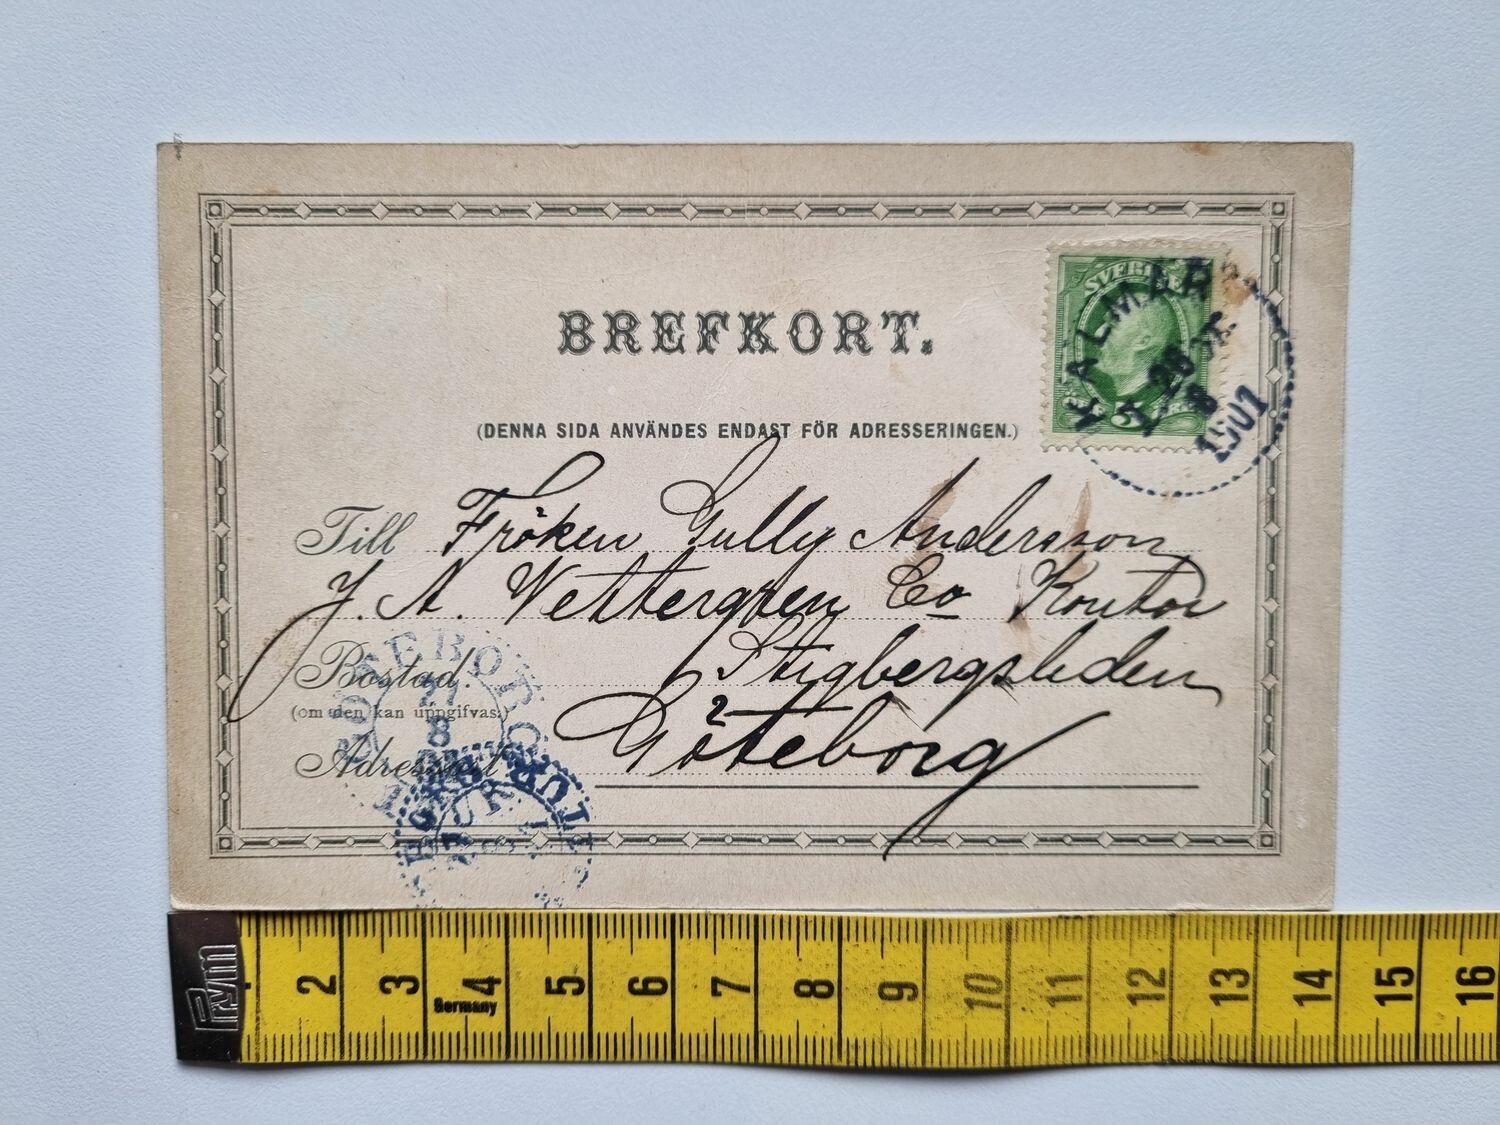 BREFKORT.
SVERIGE
5
KALMAR
1901
(DENNA SIDA ANVÄNDES ENDAST FÖR ADRESSERINGEN.)
Till Fröken Gully Andersson
J. A. Wettergren Co Kontor
Bostad. Stigbergsleden
(om den kan uppgifvas.)
Göteborg
8
Prym
2 3 4 5 6 7 8 9 10 11 12 13 14 15 16
Germany